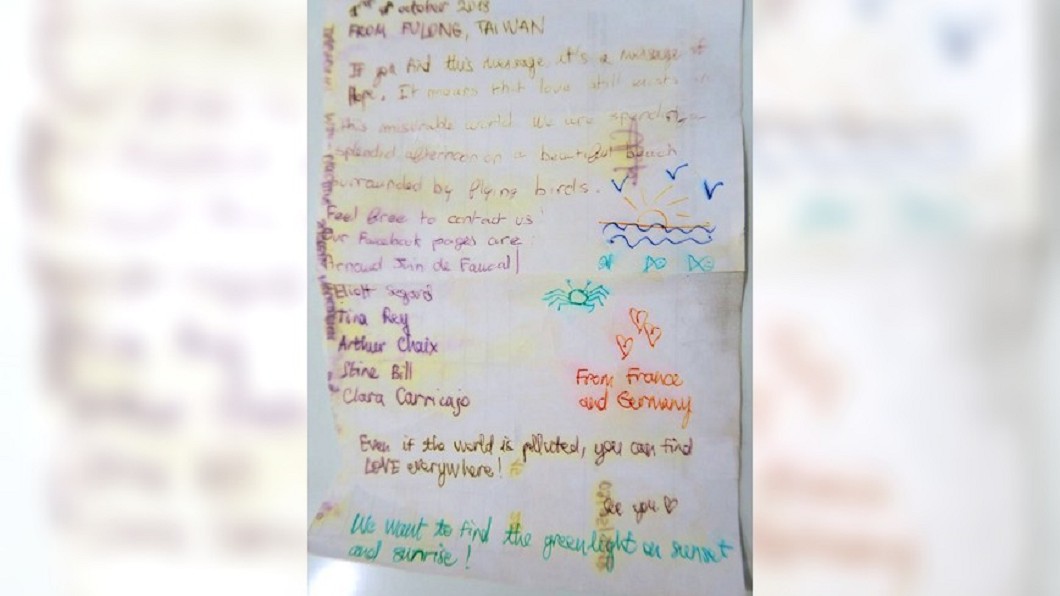 of october 2018
FROM FULONG, TAIWAN
If you find this message, it's a message of
Hope. It means that love still exists in
this miserable world. We are spending a
splendid afternoon on a beautiful beach
surrounded by flying birds.
Feel free to contact us!
Our Facebook pages are:
Arnaud Join de
Eliott
Tina Rey
Arthur Chaix
Stine Bill
Clara Carricajo
From France
and Germany
Even if the world is polluted, you can find
LOVE everywhere!
See you
We want to find the greenlight on sunset
and sunrise!